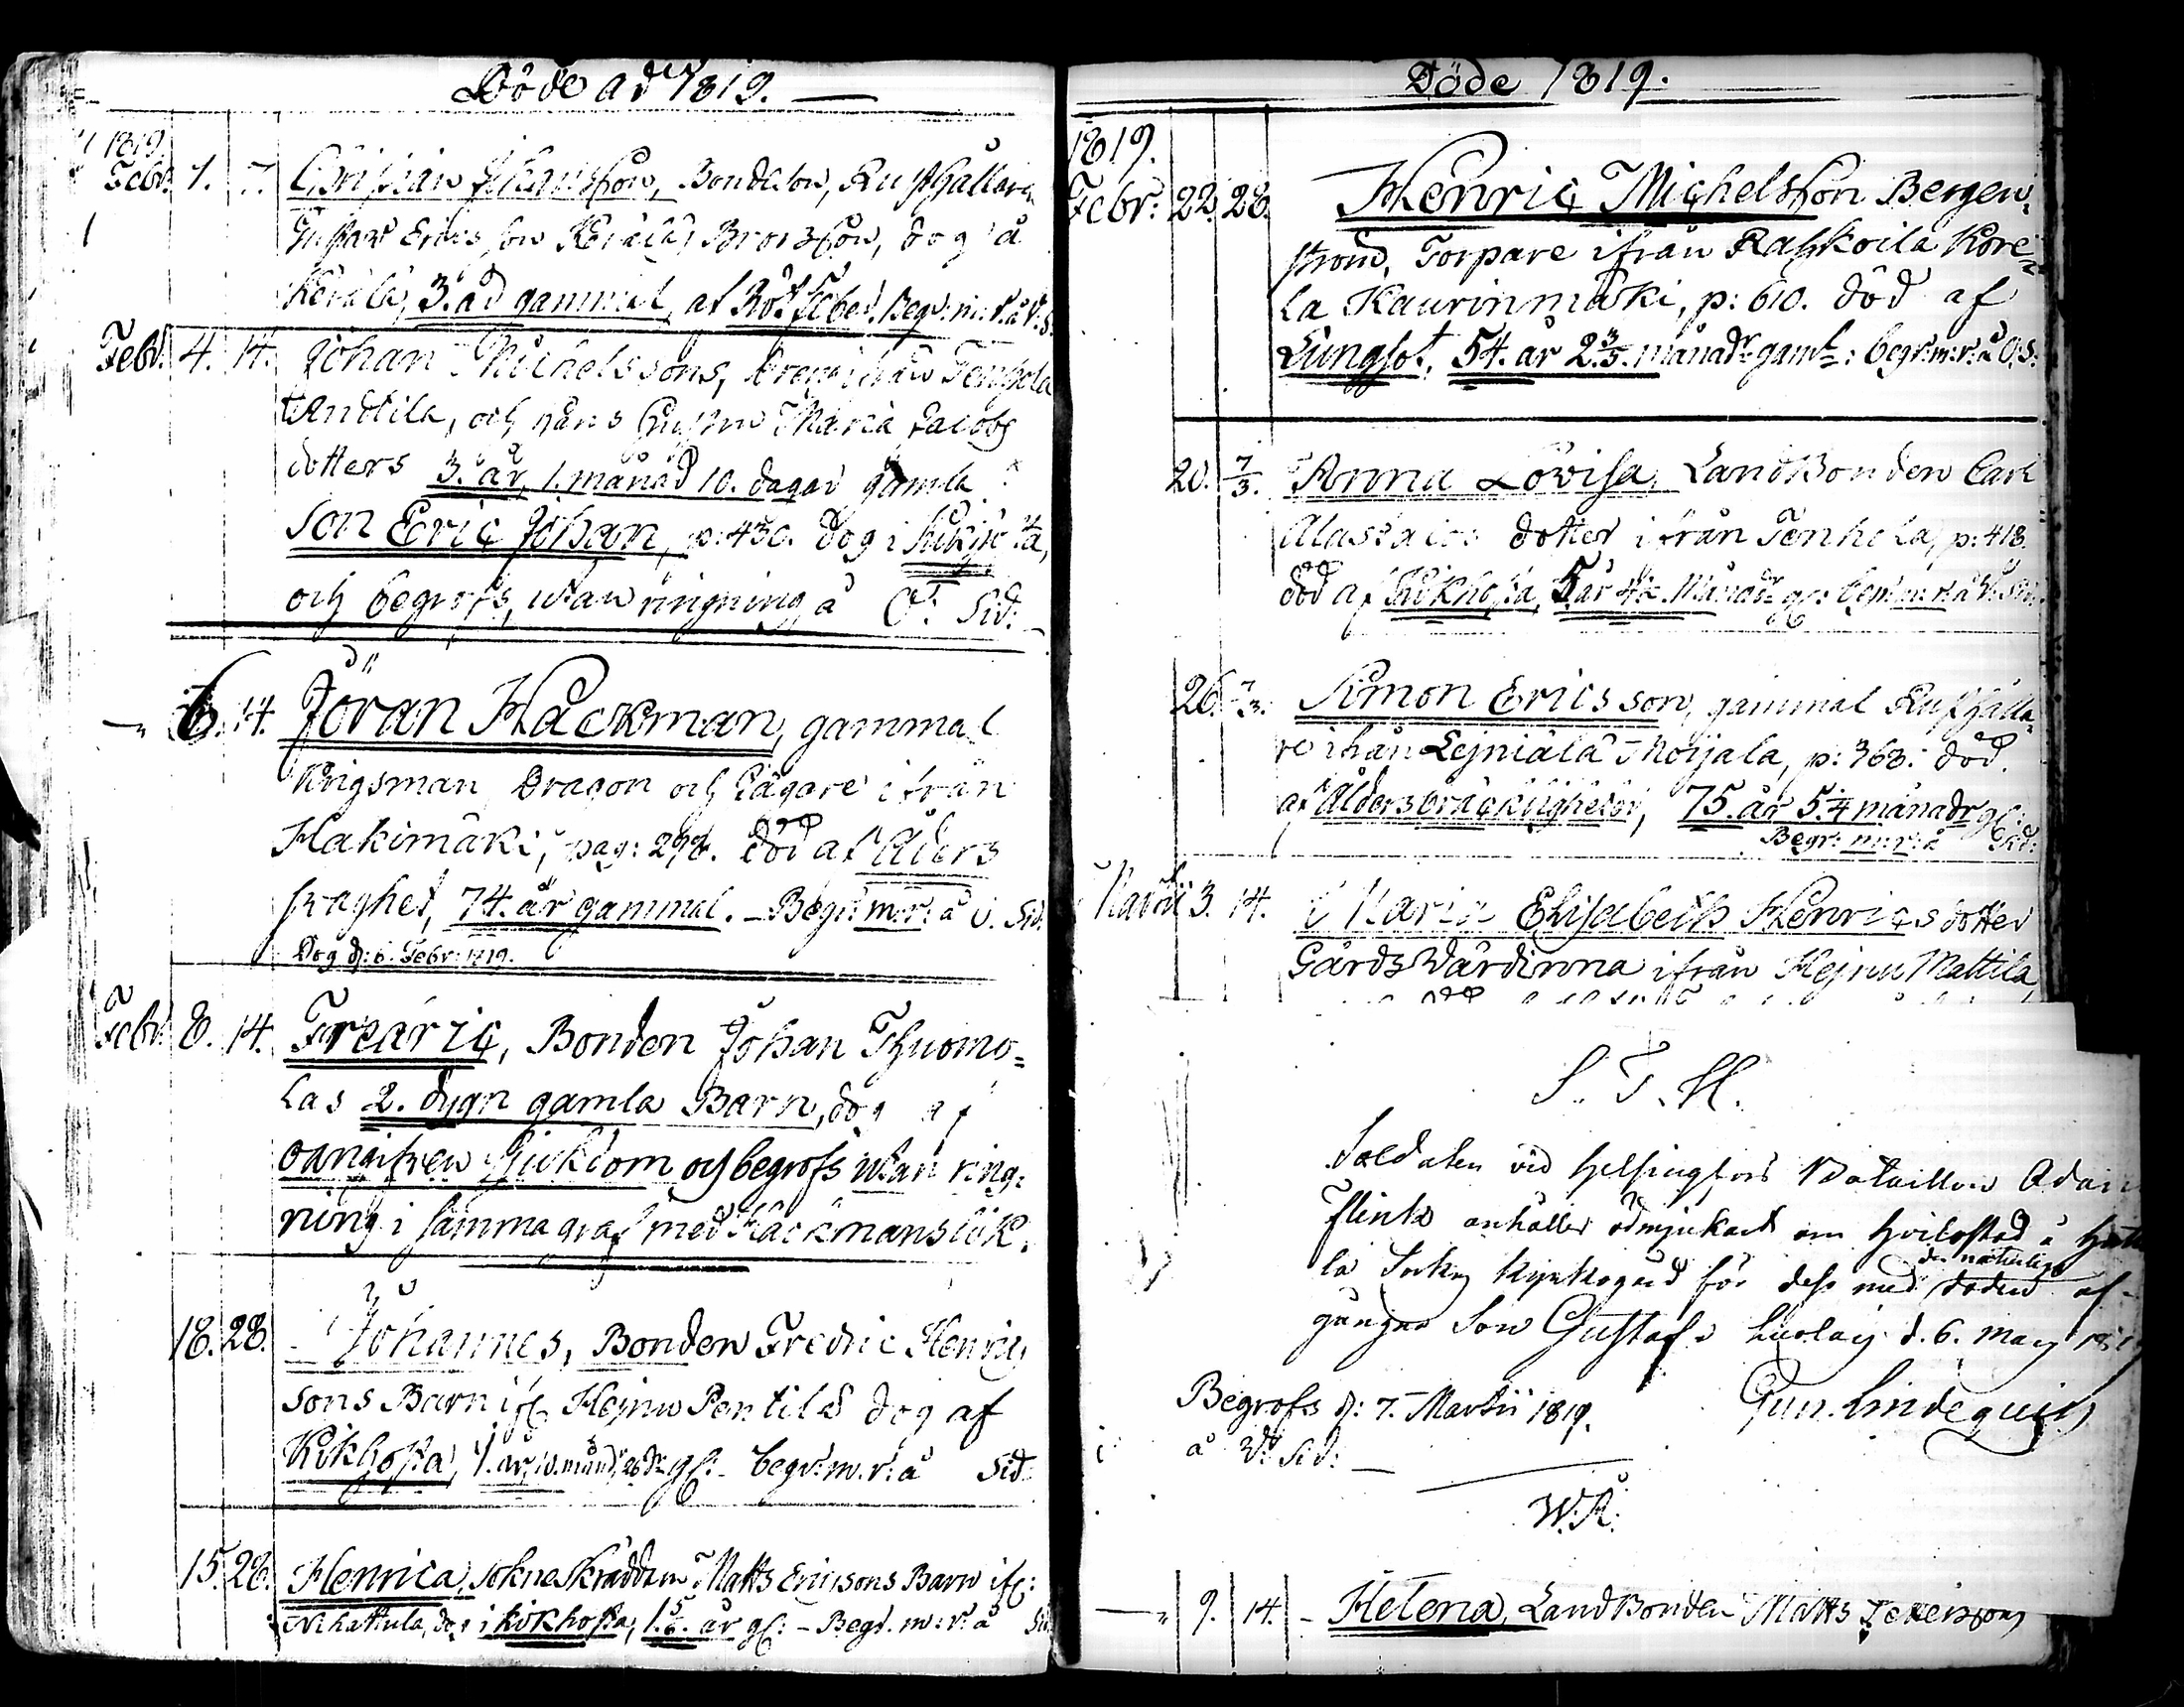 Döde ad 1819.
1819.
Febr. 1. 7. Christian Johansson, Bondeson, Rusthållaren
Gustav Ericsson Kerälä, Brorsson, dog å
Kerälä, 3. år gammal, af Röt feber. Begr: m: r: å V. S.
Febr. 4. 14. Johan Michelssons, ifrån Tenhola
Andtila, och hans Hustru Maria Jacobs
dotters 3. år, 1. månad 10. dagar gamla
Son Eric Johan, p: 430. dog i Kikhosta,
och begrofs, utan ringning å Ö: Sid:
6. 14. Jöran Hackman, gammal
Krigsman Dragon och Jägare ifrån
Hakimäki, pag: 298. död af Ålders
svaghet, 74. år gammal. – Begr: m: r: å Ö. Sid.
Dog d: 6. Febr: 1819.
Febr. 8. 14. Fredric, Bonden Johan Thuomo-
las 2. dygn gamla Barn, dog af
oangifven Sjukdom och begrofs utan ring-
ning i samma graf med Hackmans lik.
18. 28. Johannes, Bonden Fredric Henrics
sons Barn ifr Hejnu Pentilä dog af
Kikhosta, 1. år, 10. månr, 26 d: gl: begr: m. r: å Sid.
15. 28. Henrica, Sokneskräddaren Matts Ericsons Barn ifr:
Nihattula, dog i kikhosta, 1 5/6. år gl: – Begr. m: r: å Sid.
Döde 1819.
1819.
Febr: 22. 28. Henric Michelsson Bergen-
strand, Torpare ifrån Rahkoila Kore-
la Kaurinmäki, p: 610. död af
Lungsot, 54. år 2 3/5. månadr gaml: begr: m: r: å Ö. S.
20. 7/3. Anna Lovisa, Landbonden Carl
Alastalos dotter ifrån Tenhola, p: 418.
död af Kikhosta, 5 år månadr gl: begr: m: r: å V. Sid.
26. 7/3. Simon Ericsson, gammal Rusthålla-
re ifrån Lejniälä Moijala, p: 363: död
af Ålders bräcklighet, 75. år 5 1/4 månadr gl:
Begr: m: r: å Sid:
Martii 3. 14. Maria Elisabeth Henricsdotter
Gårds Värdinna ifrån Hejnu Mattila,
S. T. H.
Soldaten vid Helsingfors Bataillon Adam
Flink anhåller ödmjukast om hvilostad å Hattu
la Sockn Kyrkogård för dess med den naturliga döden af-
gångne Son Gustaf. Luolais d. 6. Mars 1819
Gun. Lindequist
Begrofs d: 7. Martii 1819.
å V: Sid:
W. R.
9. 14. – Helena, Landbonden Matts